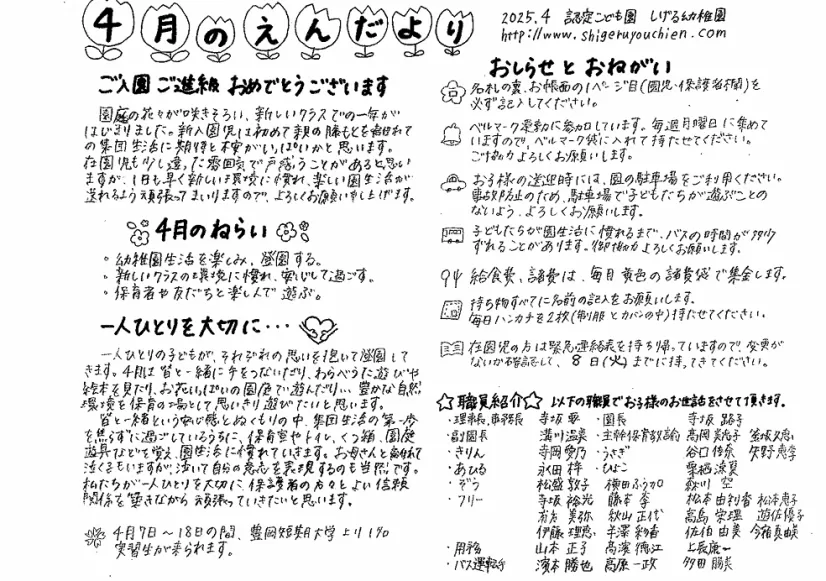 4月のえんだより
2025.4 認定こども園 しげる幼稚園
http://www.shigeruyouchien.com
ご入園 ご進級 おめでとうございます
園庭の花々が咲きそろい、新しいクラスでの一年が
はじまりました。新入園児は初めて親の膝もとを離れて
の集団生活に期待と不安がいっぱいかと思います。
在園児も少し違った雰囲気で戸惑うことがあると思い
ますが、1日も早く新しい環境に慣れ、楽しい園生活が
送れるよう頑張ってまいりますので、よろしくお願い申し上げます。
4月のねらい
・幼稚園生活を楽しみ、登園する。
・新しいクラスの環境に慣れ、安心して過ごす。
・保育者や友だちと楽しんで遊ぶ。
一人ひとりを大切に…
一人ひとりの子どもが、それぞれの思いを抱いて登園して
きます。4月は皆と一緒に手をつないだり、わらべうた遊びや
絵本を見たり、お花いっぱいの園庭で遊んだり…豊かな自然
環境を保育の場として思いきり遊びたいと思います。
皆と一緒という安心感とぬくもりの中、集団生活の第一歩
を焦らずに過ごしているうちに、保育室やトイレ、くつ箱、園庭
遊具などを覚え、園生活に慣れていきます。お母さんと離れて
泣く子もいますが、泣いて自分の意志を表現するのも当然です。
私たちが一人ひとりを大切に、保護者の方々とよい信頼
関係を築きながら頑張っていきたいと思います。
4月7日～18日の間、豊岡短期大学より1名
実習生が来られます。
おしらせとおねがい
名札の裏、お帳面の1ページ目(園児・保護者欄)を
必ず記入してください。
ベルマーク運動に参加しています。毎週月曜日に集めて
いますので、ベルマーク袋に入れて持たせてください。
ご協力よろしくお願いします。
お子様の送迎時には、園の駐車場をご利用ください。
事故防止のため、駐車場で子どもたちが遊ぶことの
ないよう、よろしくお願いします。
子どもたちが園生活に慣れるまで、バスの時間が多少
ずれることがあります。御協力よろしくお願いします。
給食費、諸費は、毎月黄色の諸費袋で集金します。
持ち物すべてに名前の記入をお願いします。
毎日ハンカチを2枚(制服とカバンの中)持たせてください。
在園児の方は緊急連絡表を持ち帰っていますので、変更が
ないか確認をして、8日(火)までに持ってきてください。
☆職員紹介☆ 以下の職員でお子様のお世話をさせて頂きます。
・理事長、事務長 寺坂 ・園長 寺坂
・副園長 溝川温美 ・主幹保育教諭 高岡 
・きりん 寺岡愛乃 ・うさぎ 谷口
・あひる 永田梓 ・ひよこ 栗栖涼夏
・ぞう 松盛敦子 横田ふうか 森川空
・フリー 寺坂裕光 藤本孝 松本由利香 松本恵子
美弥 秋山正代 高島 遊佐優子
伊藤理恵 半澤彩香 佐伯由美
・用務 山本正子 高濱徳江 上長慶一
・バス運転手 濱本勝也 高原一政 多田勝美